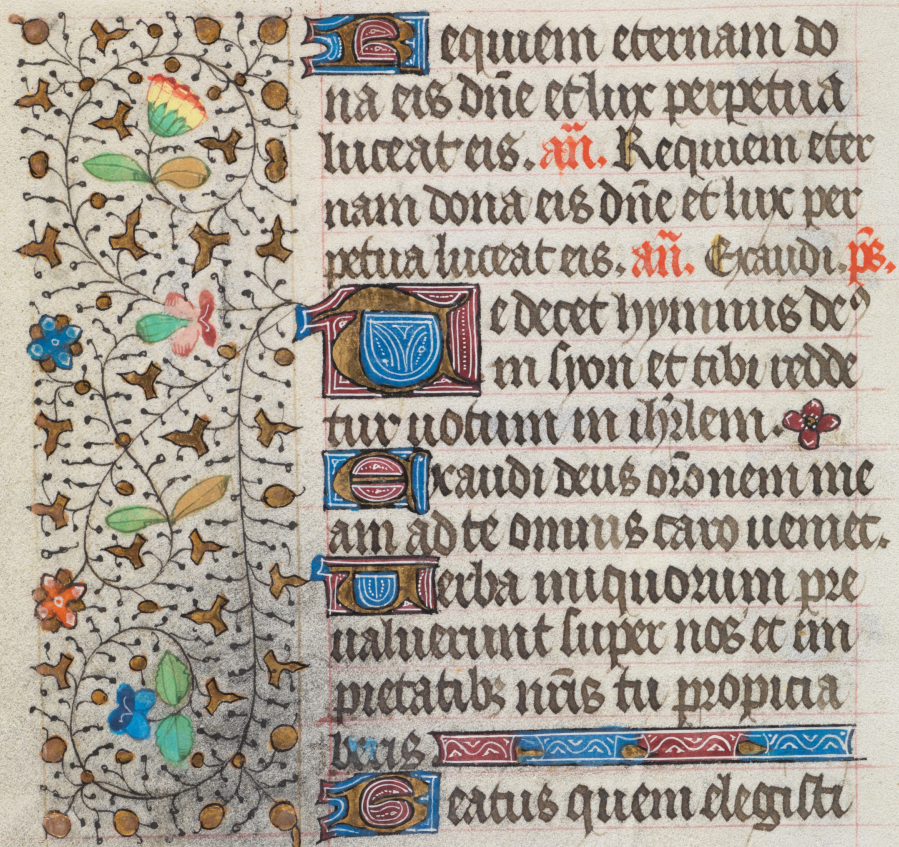 Requiem eternam do
na eis dn̄e et lux perpetua
luceat eis. an̄. Requiem eter
nam dona eis dn̄e et lux per
petua luceat eis. an̄. Exaudi. ps̄.
Te decet hymnus deꝰ
in syon et tibi redde
tur uotum in ihrl̄em.
Exaudi deus orōnem me
am ad te omnis caro ueniet.
Uerba iniquorum pre
ualuerunt super nos et im
pietatibꝫ nr̄is tu propicia
beris
Beatus quem elegisti